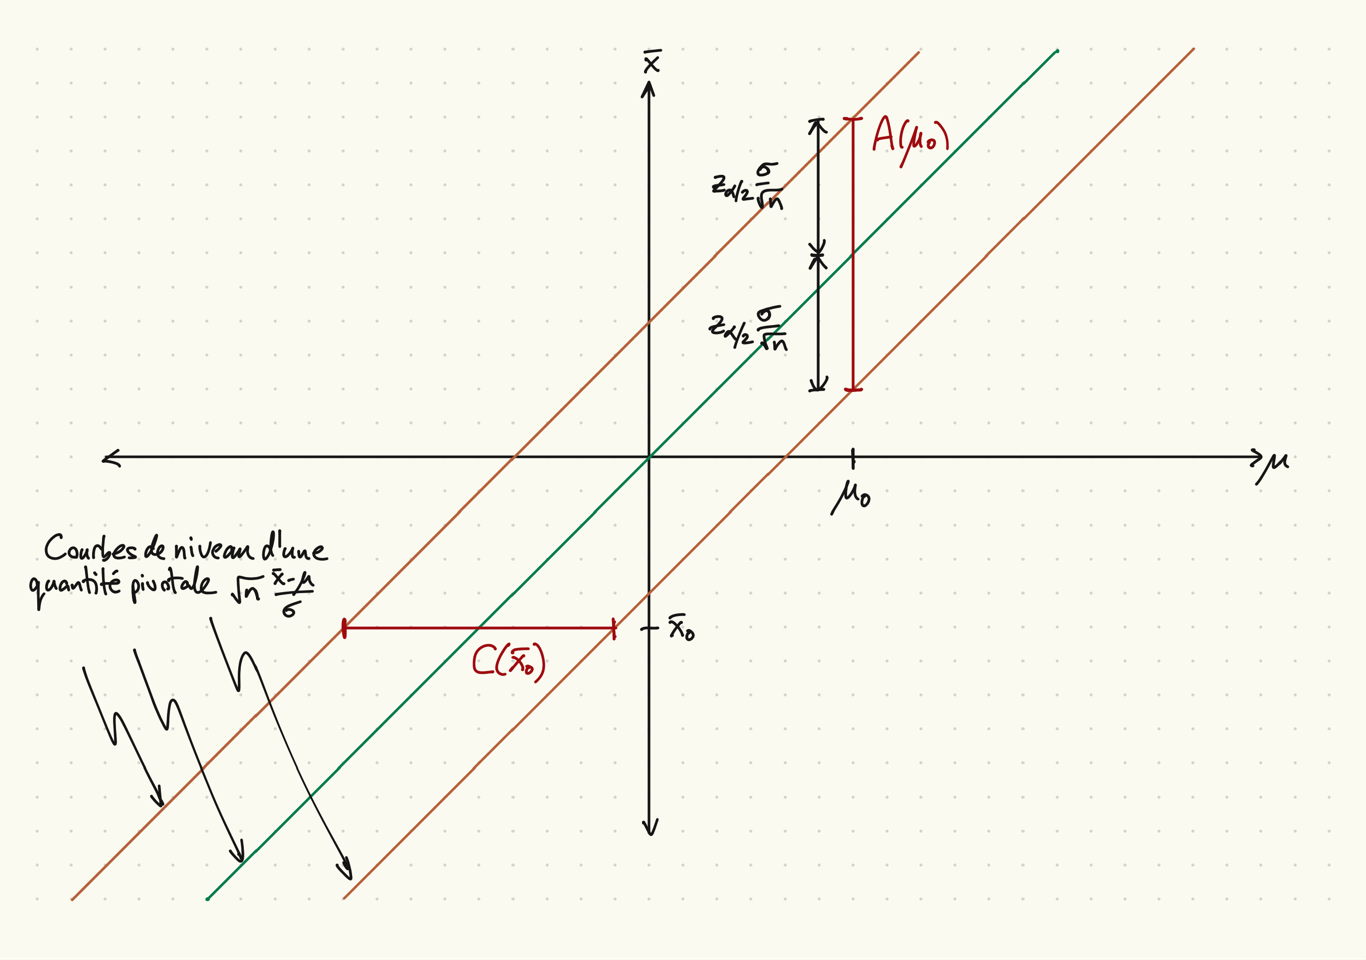 x̄
A(μ₀)
z_{α/2} σ/√n
z_{α/2} σ/√n
μ
μ₀
Courbes de niveau d'une
quantité pivotale √n (x̄-μ)/σ
x̄₀
C(x̄₀)